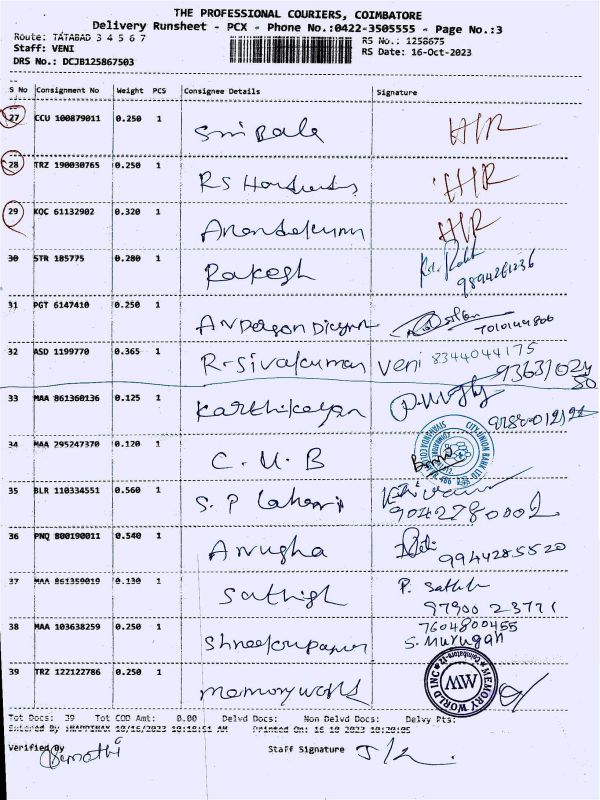 THE PROFESSIONAL COURIERS, COIMBATORE
Delivery Runsheet - PCX - Phone No.:0422-3505555 - Page No.:3
Route: TATABAD 3 4 5 6 7
RS No.: 1258675
Staff: VENI
RS Date: 16-Oct-2023
DRS No.: DCJB125867503
S No Consignment No Weight PCS Consignee Details Signature
27 CCU 100879011 0.250 1
Sri Bala H/R
28 TRZ 190030765 0.250 1
RS H/R
29 KQC 61132902 0.320 1
Anandakumar H/R
30 STR 185775 0.280 1
Rakesh
31 PGT 6147410 0.250 1
Anderson
32 ASD 1199770 0.365 1
R-Sivakumar Veni 8344044175
33 MAA 861360136 0.125 1
Karthikeyan
34 MAA 295247370 0.120 1
C. U. B CITY UNION BANK LTD
35 BLR 110334551 0.560 1
S. P
36 PNQ 800190011 0.540 1
Anugha 9944285520
37 MAA 861359019 0.130 1
Sathish P. Sathish
97900 23771
38 MAA 103638259 0.250 1
7604800455
S. Murugan
39 TRZ 122122786 0.250 1
memory world MEMORY WORLD INC Coimbatore-12 MW
Tot Docs: 39 Tot COD Amt: 0.00 Delvd Docs: Non Delvd Docs: Delvy Pts:
Entered By 10/16/2023 10:18:51 AM Printed On: 16 10 2023 10:20:05
Verified By Staff Signature